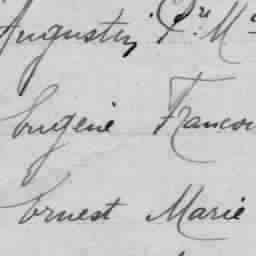 Augustin Pre M
Eugène Francou
Ernest Marie